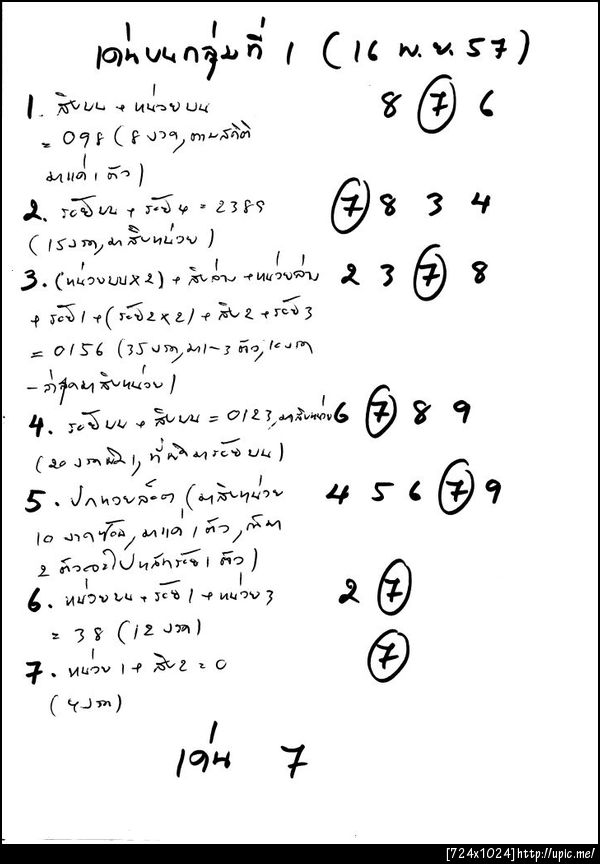 เด่นบนกลุ่มที่ 1 (16 พ.ย. 57)
1. สิบบน + หน่วยบน 8 7 6
= 098 (8 งวด, ตามสถิติ
มาแค่ 1 ตัว)
2. ร้อยบน + ร้อย 4 = 2389 7 8 3 4
(15 งวด, มาสิบหน่วย)
3. (หน่วยบน×2) + สิบล่าง + หน่วยล่าง 2 3 7 8
+ ร้อย 1 + (ร้อย 2×2) + สิบ 2 + ร้อย 3
= 0156 (35 งวด, มา 1-3 ตัว, งวด
ล่าสุดมาสิบหน่วย)
4. ร้อยบน + สิบบน = 0123, มาสิบหน่วย 6 7 8 9
(20 งวดผิด 1, ที่ผิดมาร้อยบน)
5. ปักหวยล็อต (มาสิบหน่วย 4 5 6 7 9
10 งวดซ้อน, มาแค่ 1 ตัว,
2 ตัวจะไปหลักร้อย 1 ตัว)
6. หน่วยบน + ร้อย 1 + หน่วย 3 2 7
= 38 (12 งวด)
7. หน่วย 1 + สิบ 2 = 0 7
(4 งวด)
เด่น 7
[724x1024]http://upic.me/